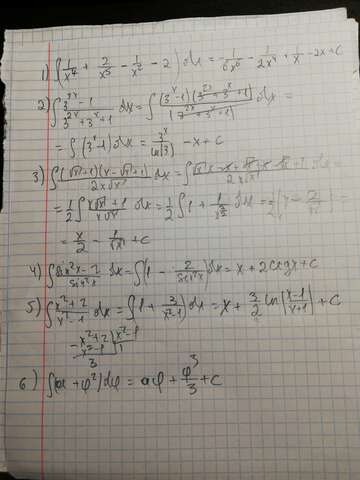 1) ∫(1/x⁷ + 2/x⁵ - 1/x² - 2) dx = -1/6x⁶ - 1/2x⁴ + 1/x - 2x + C
2) ∫ (3³ˣ - 1)/(3²ˣ + 3ˣ + 1) dx = ∫ (3ˣ-1)(3²ˣ + 3ˣ + 1)/(3²ˣ + 3ˣ + 1) dx =
= ∫ (3ˣ - 1) dx = 3ˣ/ln(3) - x + C
3) ∫ (√x + 1)(x - √x + 1)/(2x√x) dx =
1/2 ∫ (x√x + 1)/(x√x) dx = 1/2 ∫ 1 +
= x/2 - 1/√x + C
4) ∫ (sin²x - 2)/sin²x dx = ∫(1 - 2/sin²x) dx = x + 2ctgx + C
5) ∫ (x² + 2)/(x² - 1) dx = ∫ 1 + 3/(x²-1) dx = x + 3/2 ln|(x-1)/(x+1)| + C
x² + 2 | x² - 1
x² - 1 | 1
3
6) ∫(a + φ²) dφ = aφ + φ³/3 + C